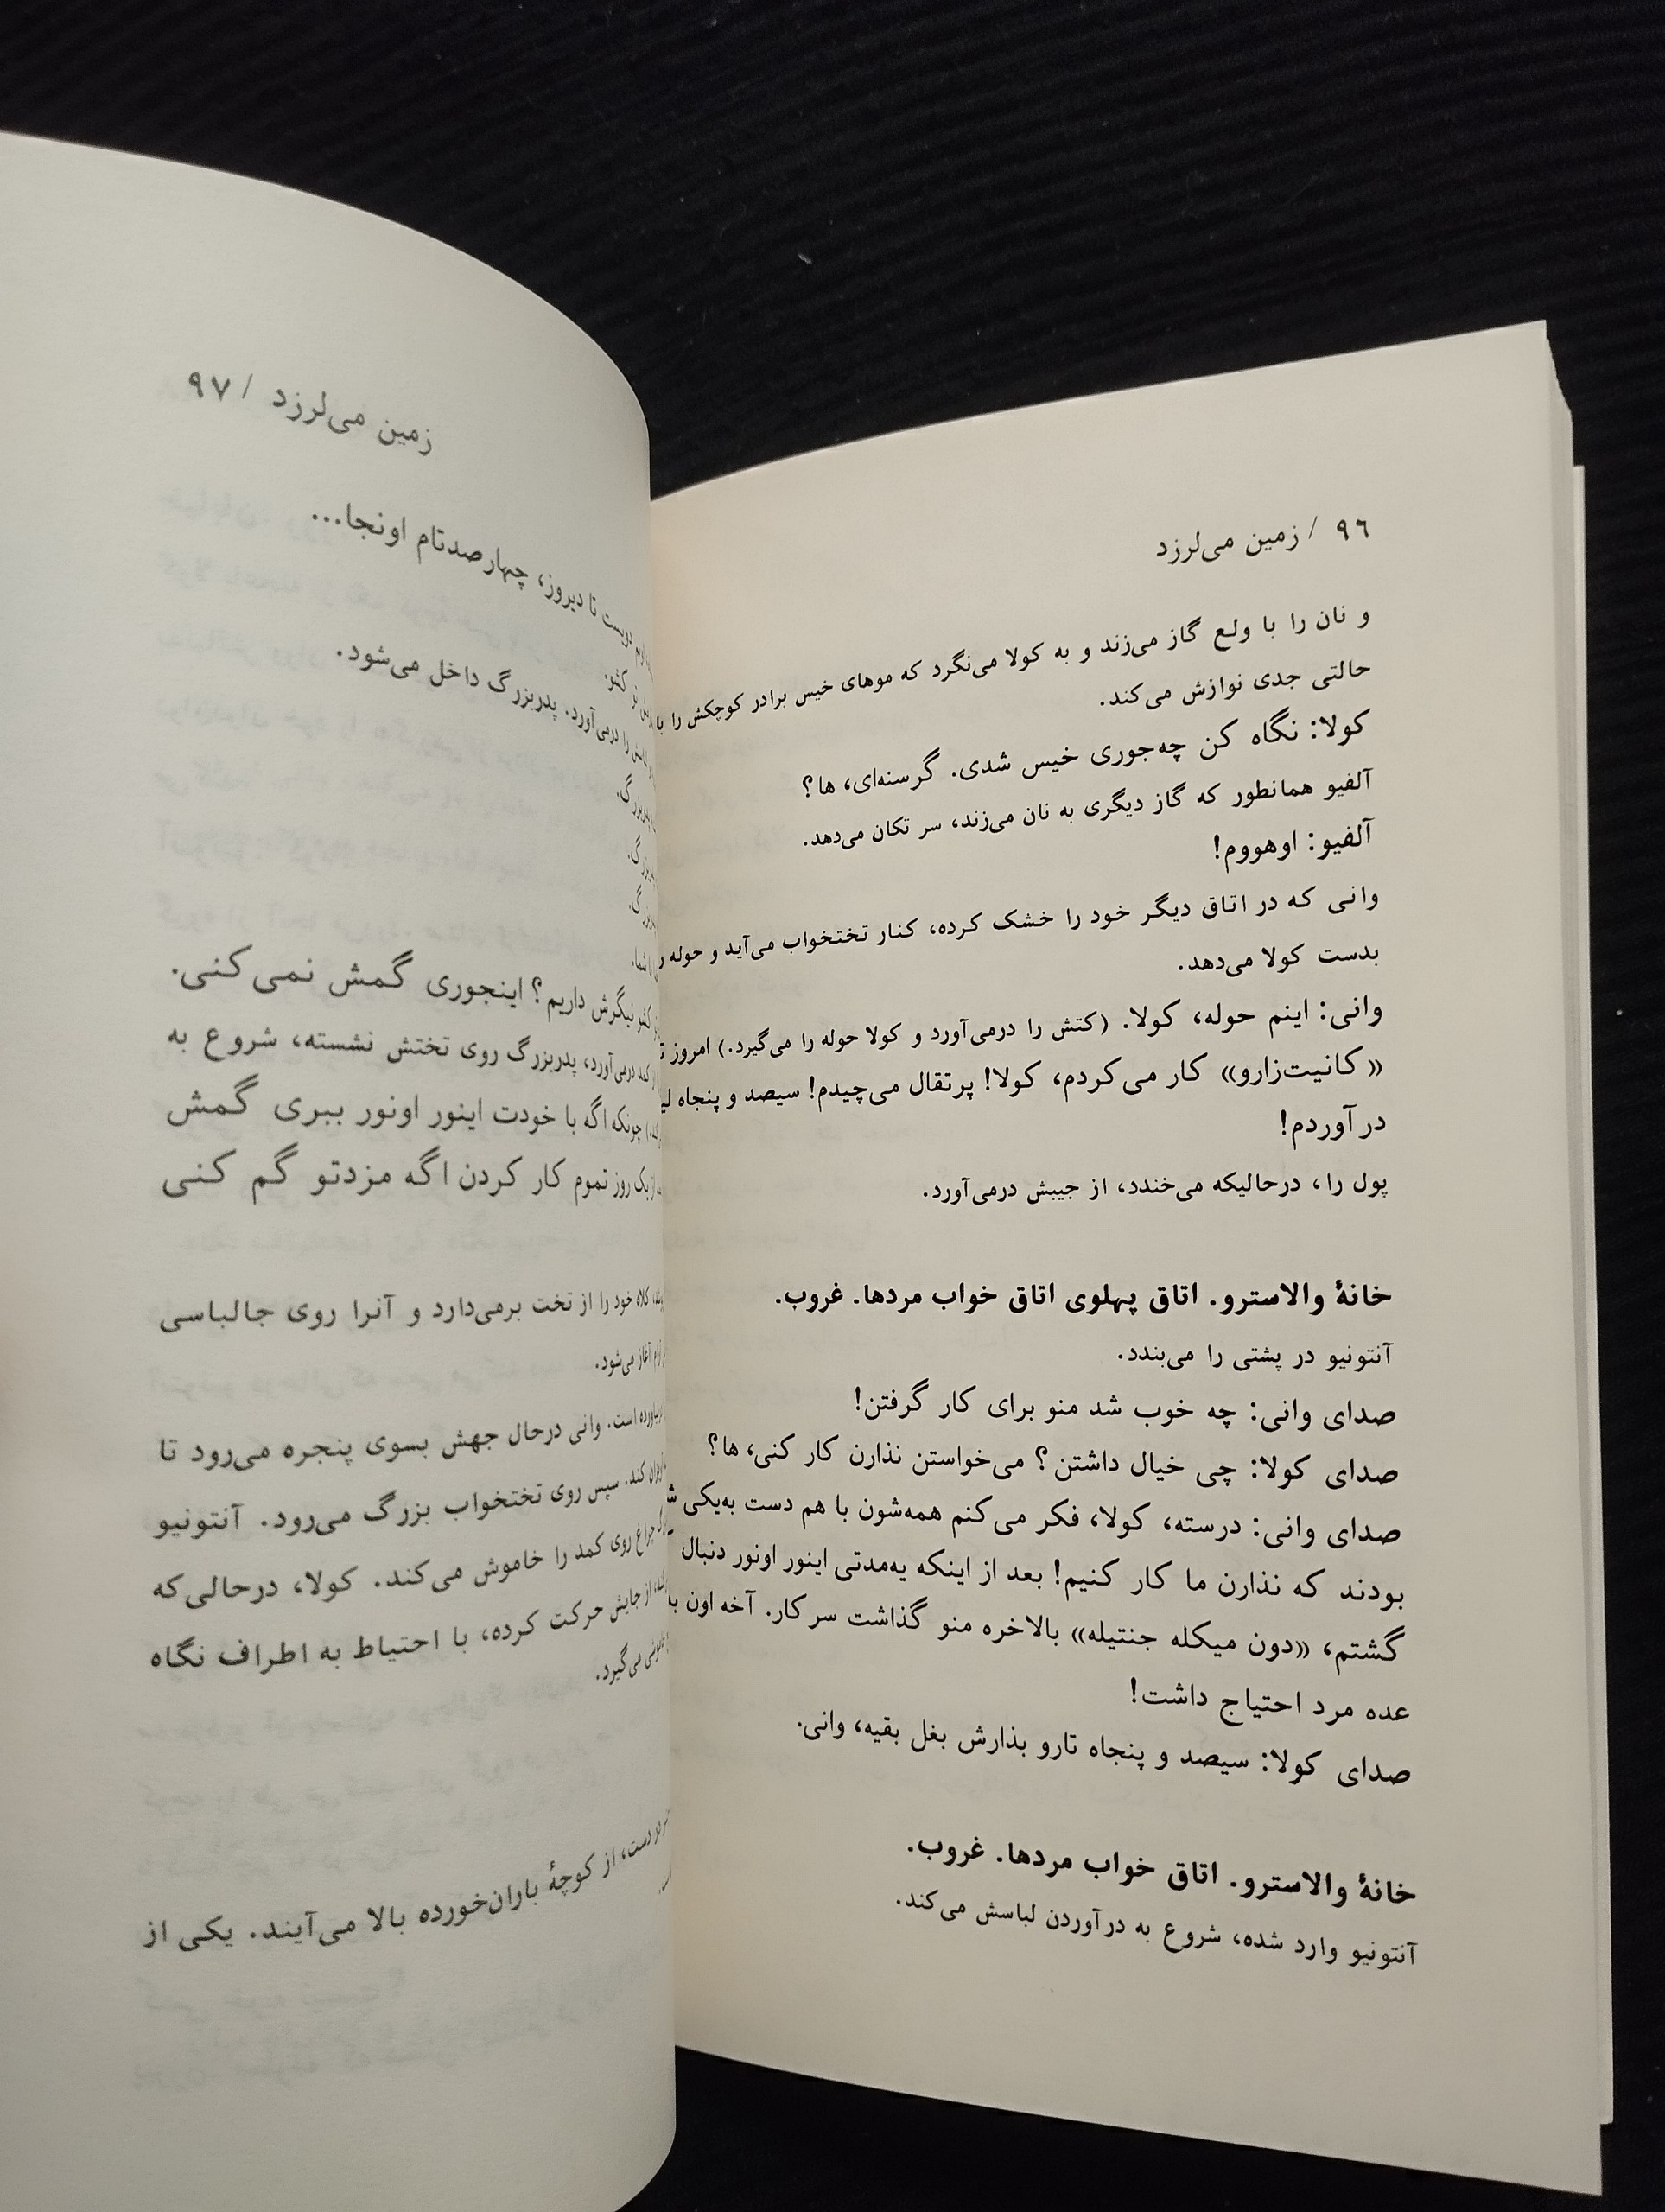 ۹۶ / زمین می‌لرزد
و نان را با ولع گاز می‌زند و به کولا می‌نگرد که موهای خیس برادر کوچکش را با
حالتی جدی نوازش می‌کند.
کولا: نگاه کن چه‌جوری خیس شدی. گرسنه‌ای، ها؟
آلفیو همانطور که گاز دیگری به نان می‌زند، سر تکان می‌دهد.
آلفیو: اوهووم!
وانی که در اتاق دیگر خود را خشک کرده، کنار تختخواب می‌آید و حوله
بدست کولا می‌دهد.
وانی: اینم حوله، کولا. (کتش را درمی‌آورد و کولا حوله را می‌گیرد.) امروز
«کانیت‌زارو» کار می‌کردم، کولا! پرتقال می‌چیدم! سیصد و پنجاه
درآوردم!
پول را، درحالیکه می‌خندد، از جیبش درمی‌آورد.
خانهٔ والاسترو. اتاق پهلوی اتاق خواب مردها. غروب.
آنتونیو در پشتی را می‌بندد.
صدای وانی: چه خوب شد منو برای کار گرفتن!
صدای کولا: چی خیال داشتن؟ می‌خواستن نذارن کار کنی، ها؟
صدای وانی: درسته، کولا، فکر می‌کنم همه‌شون با هم دست به‌یکی
بودند که نذارن ما کار کنیم! بعد از اینکه یه‌مدتی اینور اونور دنبال
گشتم، «دون میکله جنتیله» بالاخره منو گذاشت سر کار. آخه اون
عده مرد احتیاج داشت!
صدای کولا: سیصد و پنجاه تارو بذارش بغل بقیه، وانی.
خانهٔ والاسترو. اتاق خواب مردها. غروب.
آنتونیو وارد شده، شروع به درآوردن لباسش می‌کند.
زمین می‌لرزد / ۹۷
دویست تا دیروز، چهارصدتام اونجا...
کشو.
را درمی‌آورد. پدربزرگ داخل می‌شود.
پدربزرگ.
شما،
کشو نیگرش داریم؟ اینجوری گمش نمی‌کنی.
درمی‌آورد، پدربزرگ روی تختش نشسته، شروع به
چونکه اگه با خودت اینور اونور ببری گمش
یک روز تموم کار کردن اگه مزدتو گم کنی
کلاه خود را از تخت برمی‌دارد و آنرا روی جالباسی
آغاز می‌شود.
است. وانی درحال جهش بسوی پنجره می‌رود تا
کند. سپس روی تختخواب بزرگ می‌رود. آنتونیو
چراغ روی کمد را خاموش می‌کند. کولا، درحالی‌که
از جایش حرکت کرده، با احتیاط به اطراف نگاه
می‌گیرد.
دست، از کوچهٔ باران‌خورده بالا می‌آیند. یکی از